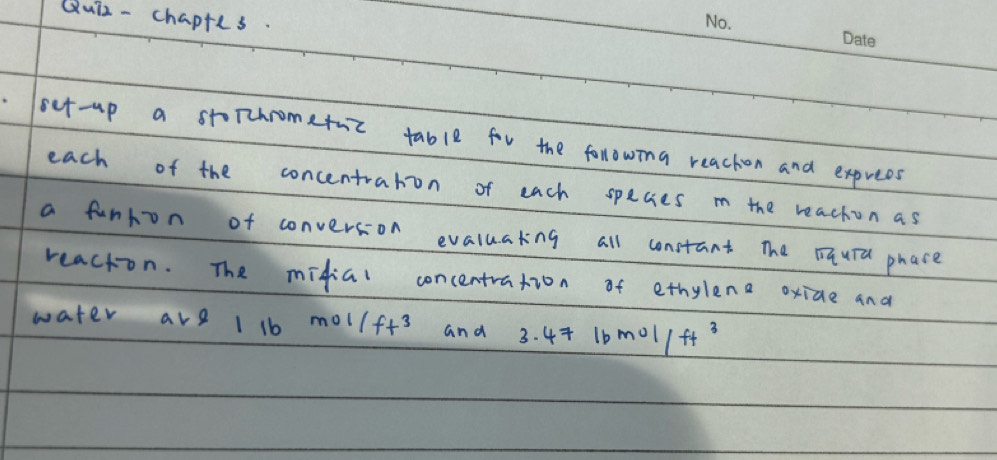 Quiz - chapter 3.
No.
Date
set-up a stoichiometric table for the following reaction and express
each of the concentration of each species in the reaction as
a funtion of conversion evaluating all constant The liquid phase
reaction. The initial concentration of ethylene oxide and
water are 1 lb mol/ft3 and 3.47 lbmol/ft3